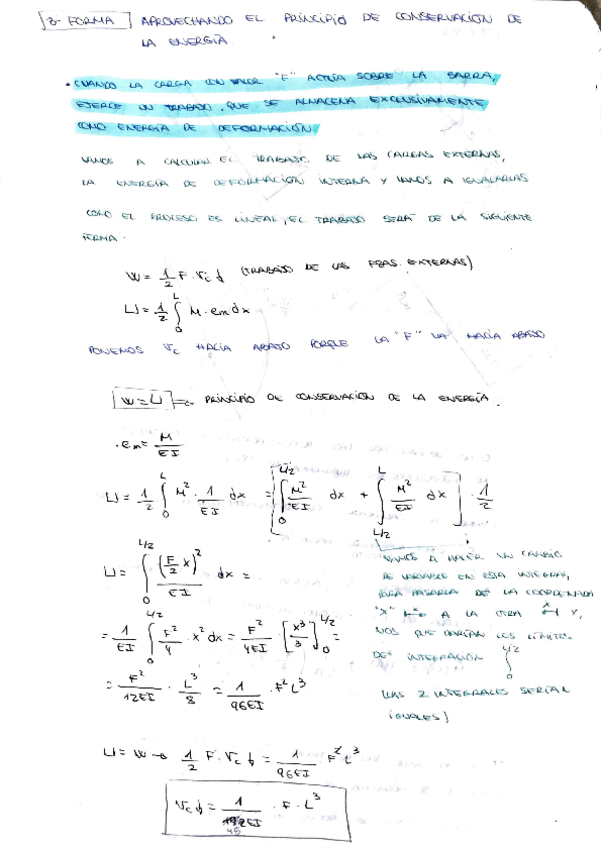 3ª FORMA APROVECHANDO EL PRINCIPIO DE CONSERVACIÓN DE
LA ENERGÍA
• CUANDO LA CARGA CON VALOR "F" ACTÚA SOBRE LA BARRA,
EJERCE UN TRABAJO, QUE SE ALMACENA EXCLUSIVAMENTE
COMO ENERGÍA DE DEFORMACIÓN
VAMOS A CALCULAR EL TRABAJO DE LAS CARGAS EXTERNAS,
LA ENERGÍA DE DEFORMACIÓN INTERNA Y VAMOS A IGUALARLAS
COMO EL PROCESO ES LINEAL, EL TRABAJO SERÁ DE LA SIGUIENTE
FORMA.
W = 1/2 F · Vc ↓ (TRABAJO DE LAS FZAS. EXTERNAS)
U = 1/2 ∫₀ᴸ M · em dx
PONEMOS Vc HACIA ABAJO PORQUE LA "F" VA HACIA ABAJO
W = U ⇒ PRINCIPIO DE CONSERVACIÓN DE LA ENERGÍA.
· em = M/EI
U = 1/2 ∫₀ᴸ M² · 1/EI dx = [∫₀^(L/2) M²/EI dx + ∫_(L/2)^L M²/EI dx] · 1/2
U = ∫₀^(L/2) (F/2 x)²/EI dx =
= 1/EI ∫₀^(L/2) F²/4 · x² dx = F²/4EI · [x³/3]₀^(L/2) =
= F²/12EI · L³/8 = 1/96EI · F² L³
VAMOS A HACER UN CAMBIO
DE VARIABLE EN ESTA INTEGRAL,
PARA PASARLA DE LA COORDENADA
"X" A LA OTRA Y,
NOS QUEDARÍAN LOS LÍMITES
DE INTEGRACIÓN ∫₀^(L/2)
(LAS 2 INTEGRALES SERÍAN
IGUALES)
U = W → 1/2 F · Vc ↓ = 1/96EI F² L³
Vc ↓ = 1/48EI · F · L³